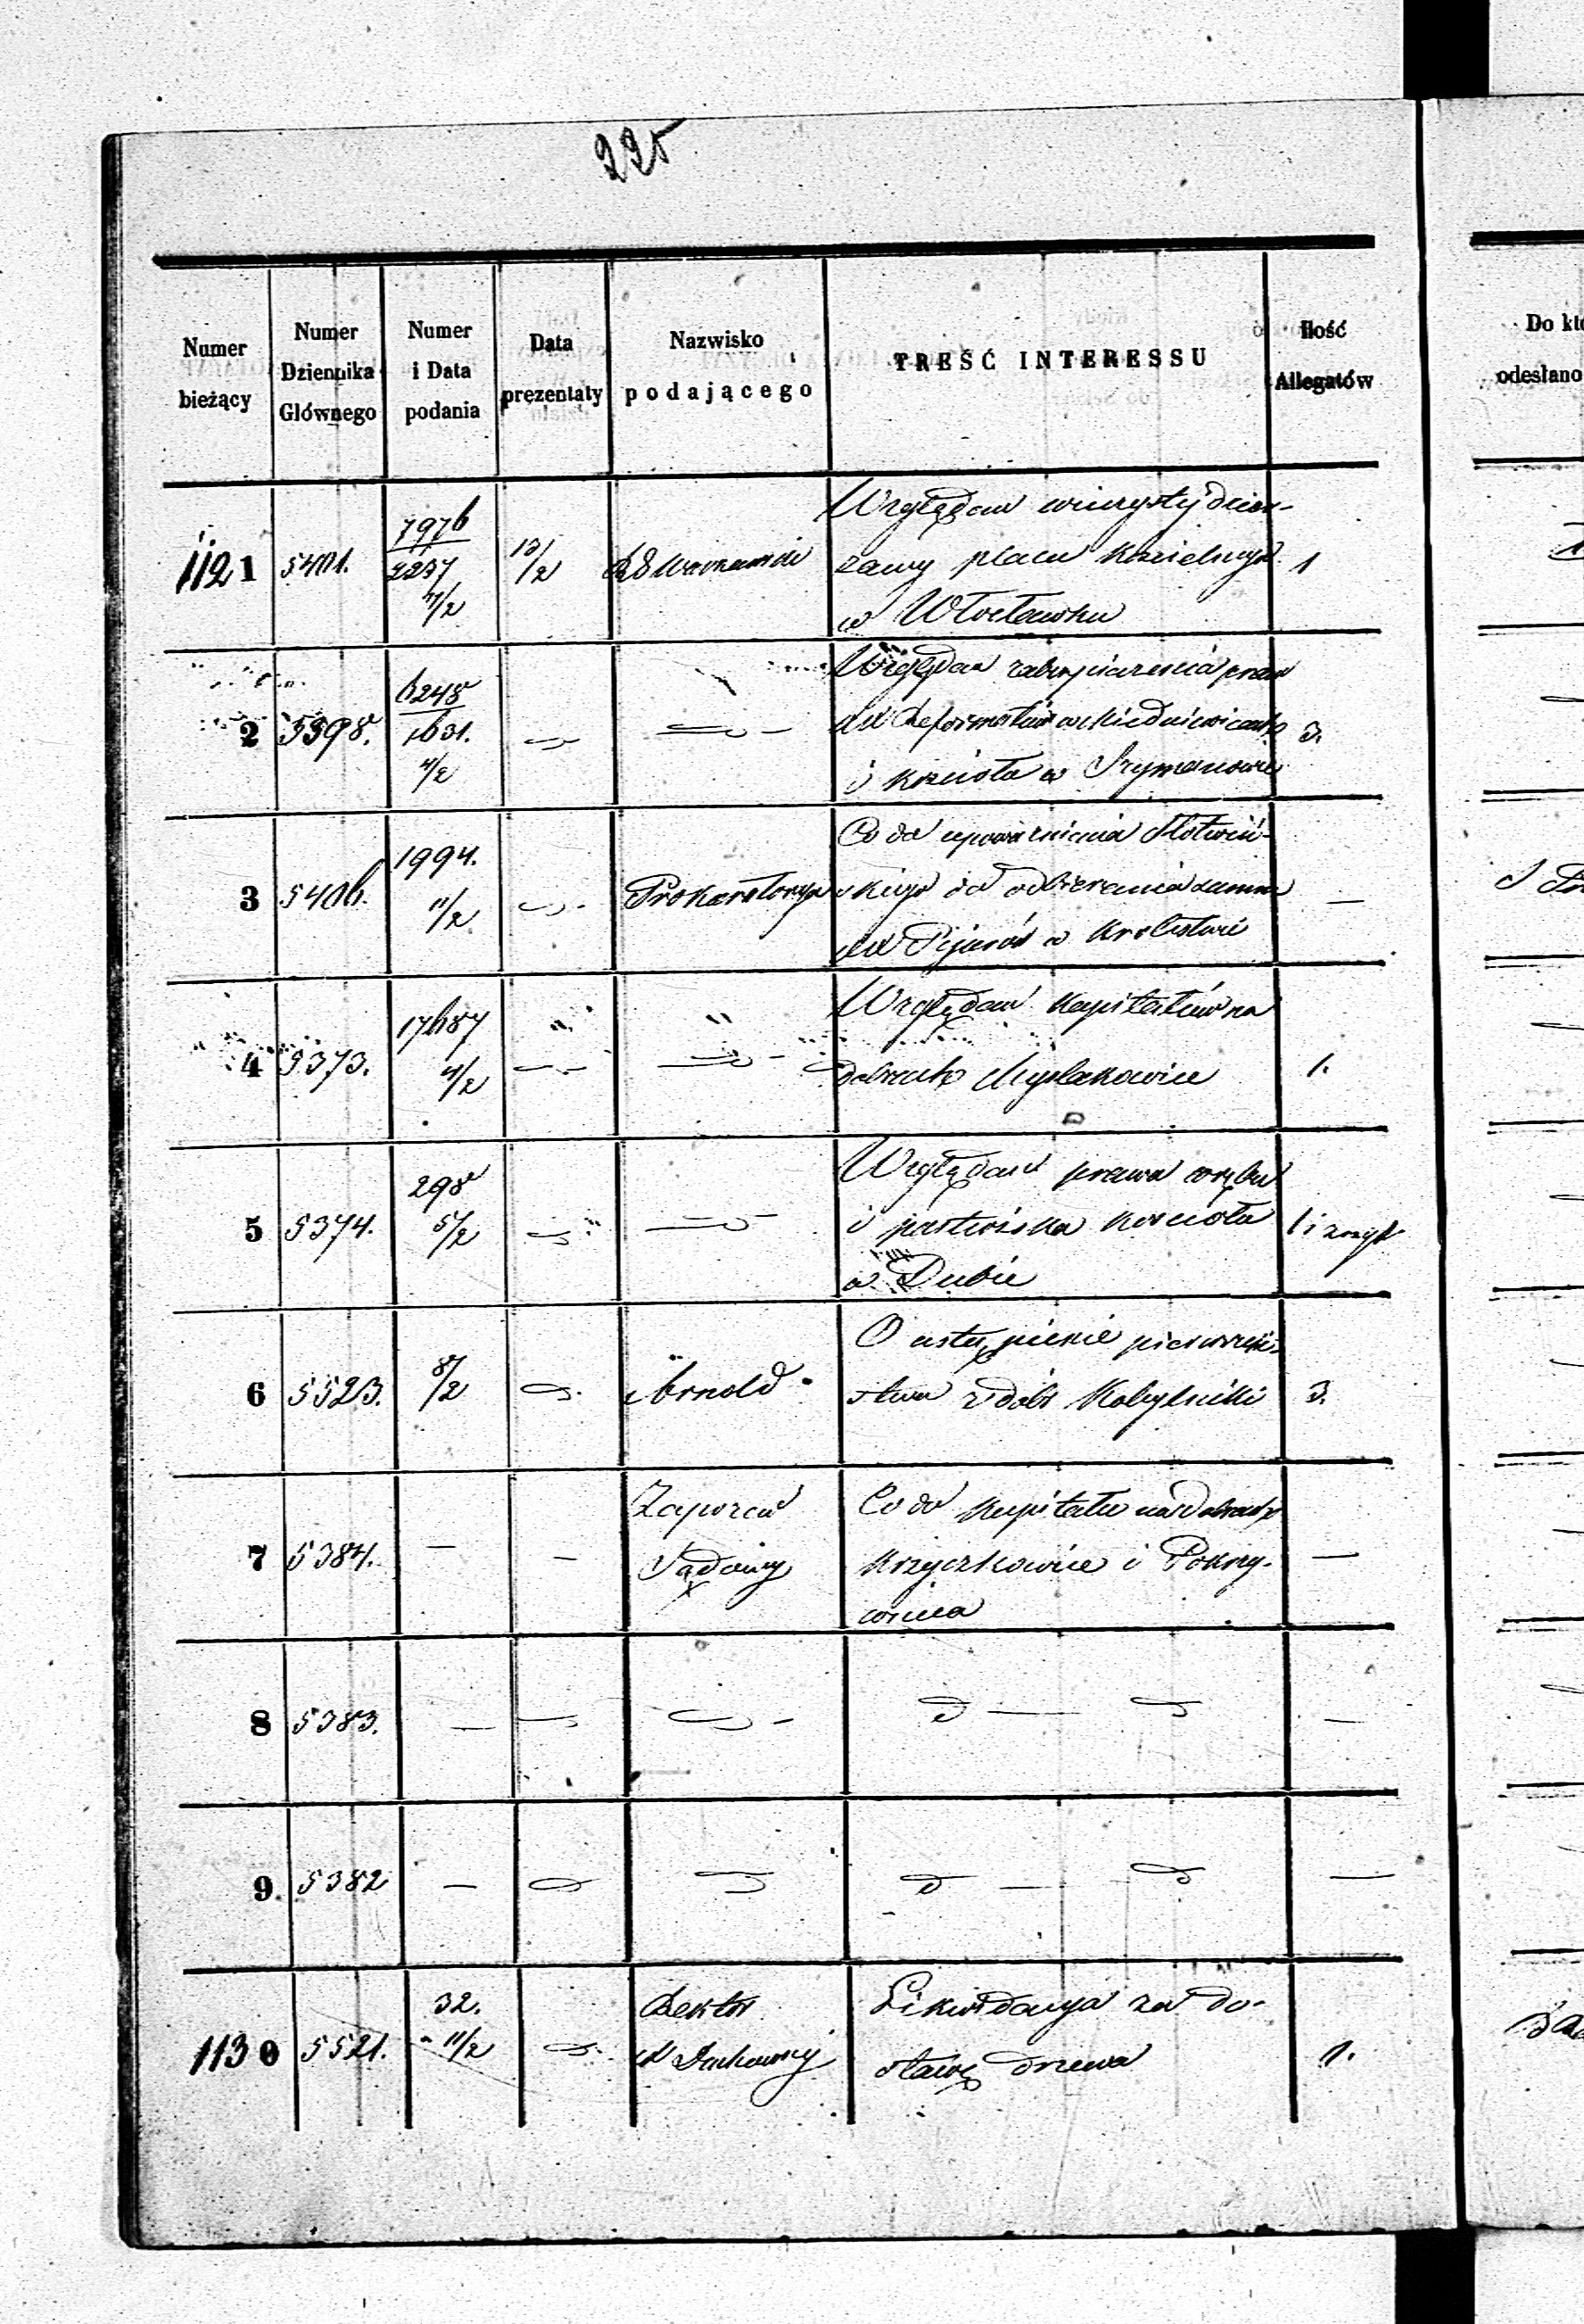 225
Numer bieżący | Numer Dziennika Głównego | Numer i Data podania | Data prezentaty | Nazwisko podającego | TREŚĆ INTERESSU | Ilość Allegatów | Do kto
odesłano
1121 | 5401. | 7976 / 2237 11/2 | 13/2 | Warszawski | Względem wieczystej dzier-
zawy placu Kościelnego | 1
w Włocławku
2 | 5398. | 6248 / 1631. 4/2 | Względem zabespieczenia praw
XX Reformatów w Miedniewicach | 3.
i kościoła w Szymanowie
3 | 5406. | 1994. 11/2 | Prokuratorya | Co do upoważnienia Słotwiń-
skiego do odbierania summ | —
XX Pijarów w Królestwie
4 | 5373. | 17687 4/2 | Względem Kapitałów na
dobrach Mysłakowice | 1.
5 | 5374. | 298 5/2 | Względem prawa wrębu
i pastwiska kościoła | 1 i zszyt
w Dubie
6 | 5523. | 8/2 | Arnold | O ustąpienie pierwszeń-
stwa z dóbr Kobylniki | 3.
7 | 5384. | — | — | Zapozew Sądowy | Co do Kapitału na dobrach
Krzyczkowice i Pokrzy-
wnica | —
8 | 5383. | —
9 | 5382 | —
1130 | 5521. | 32. 11/2 | Rektor Duchowny | Likwidacya za do-
stawę drzewa | 1.